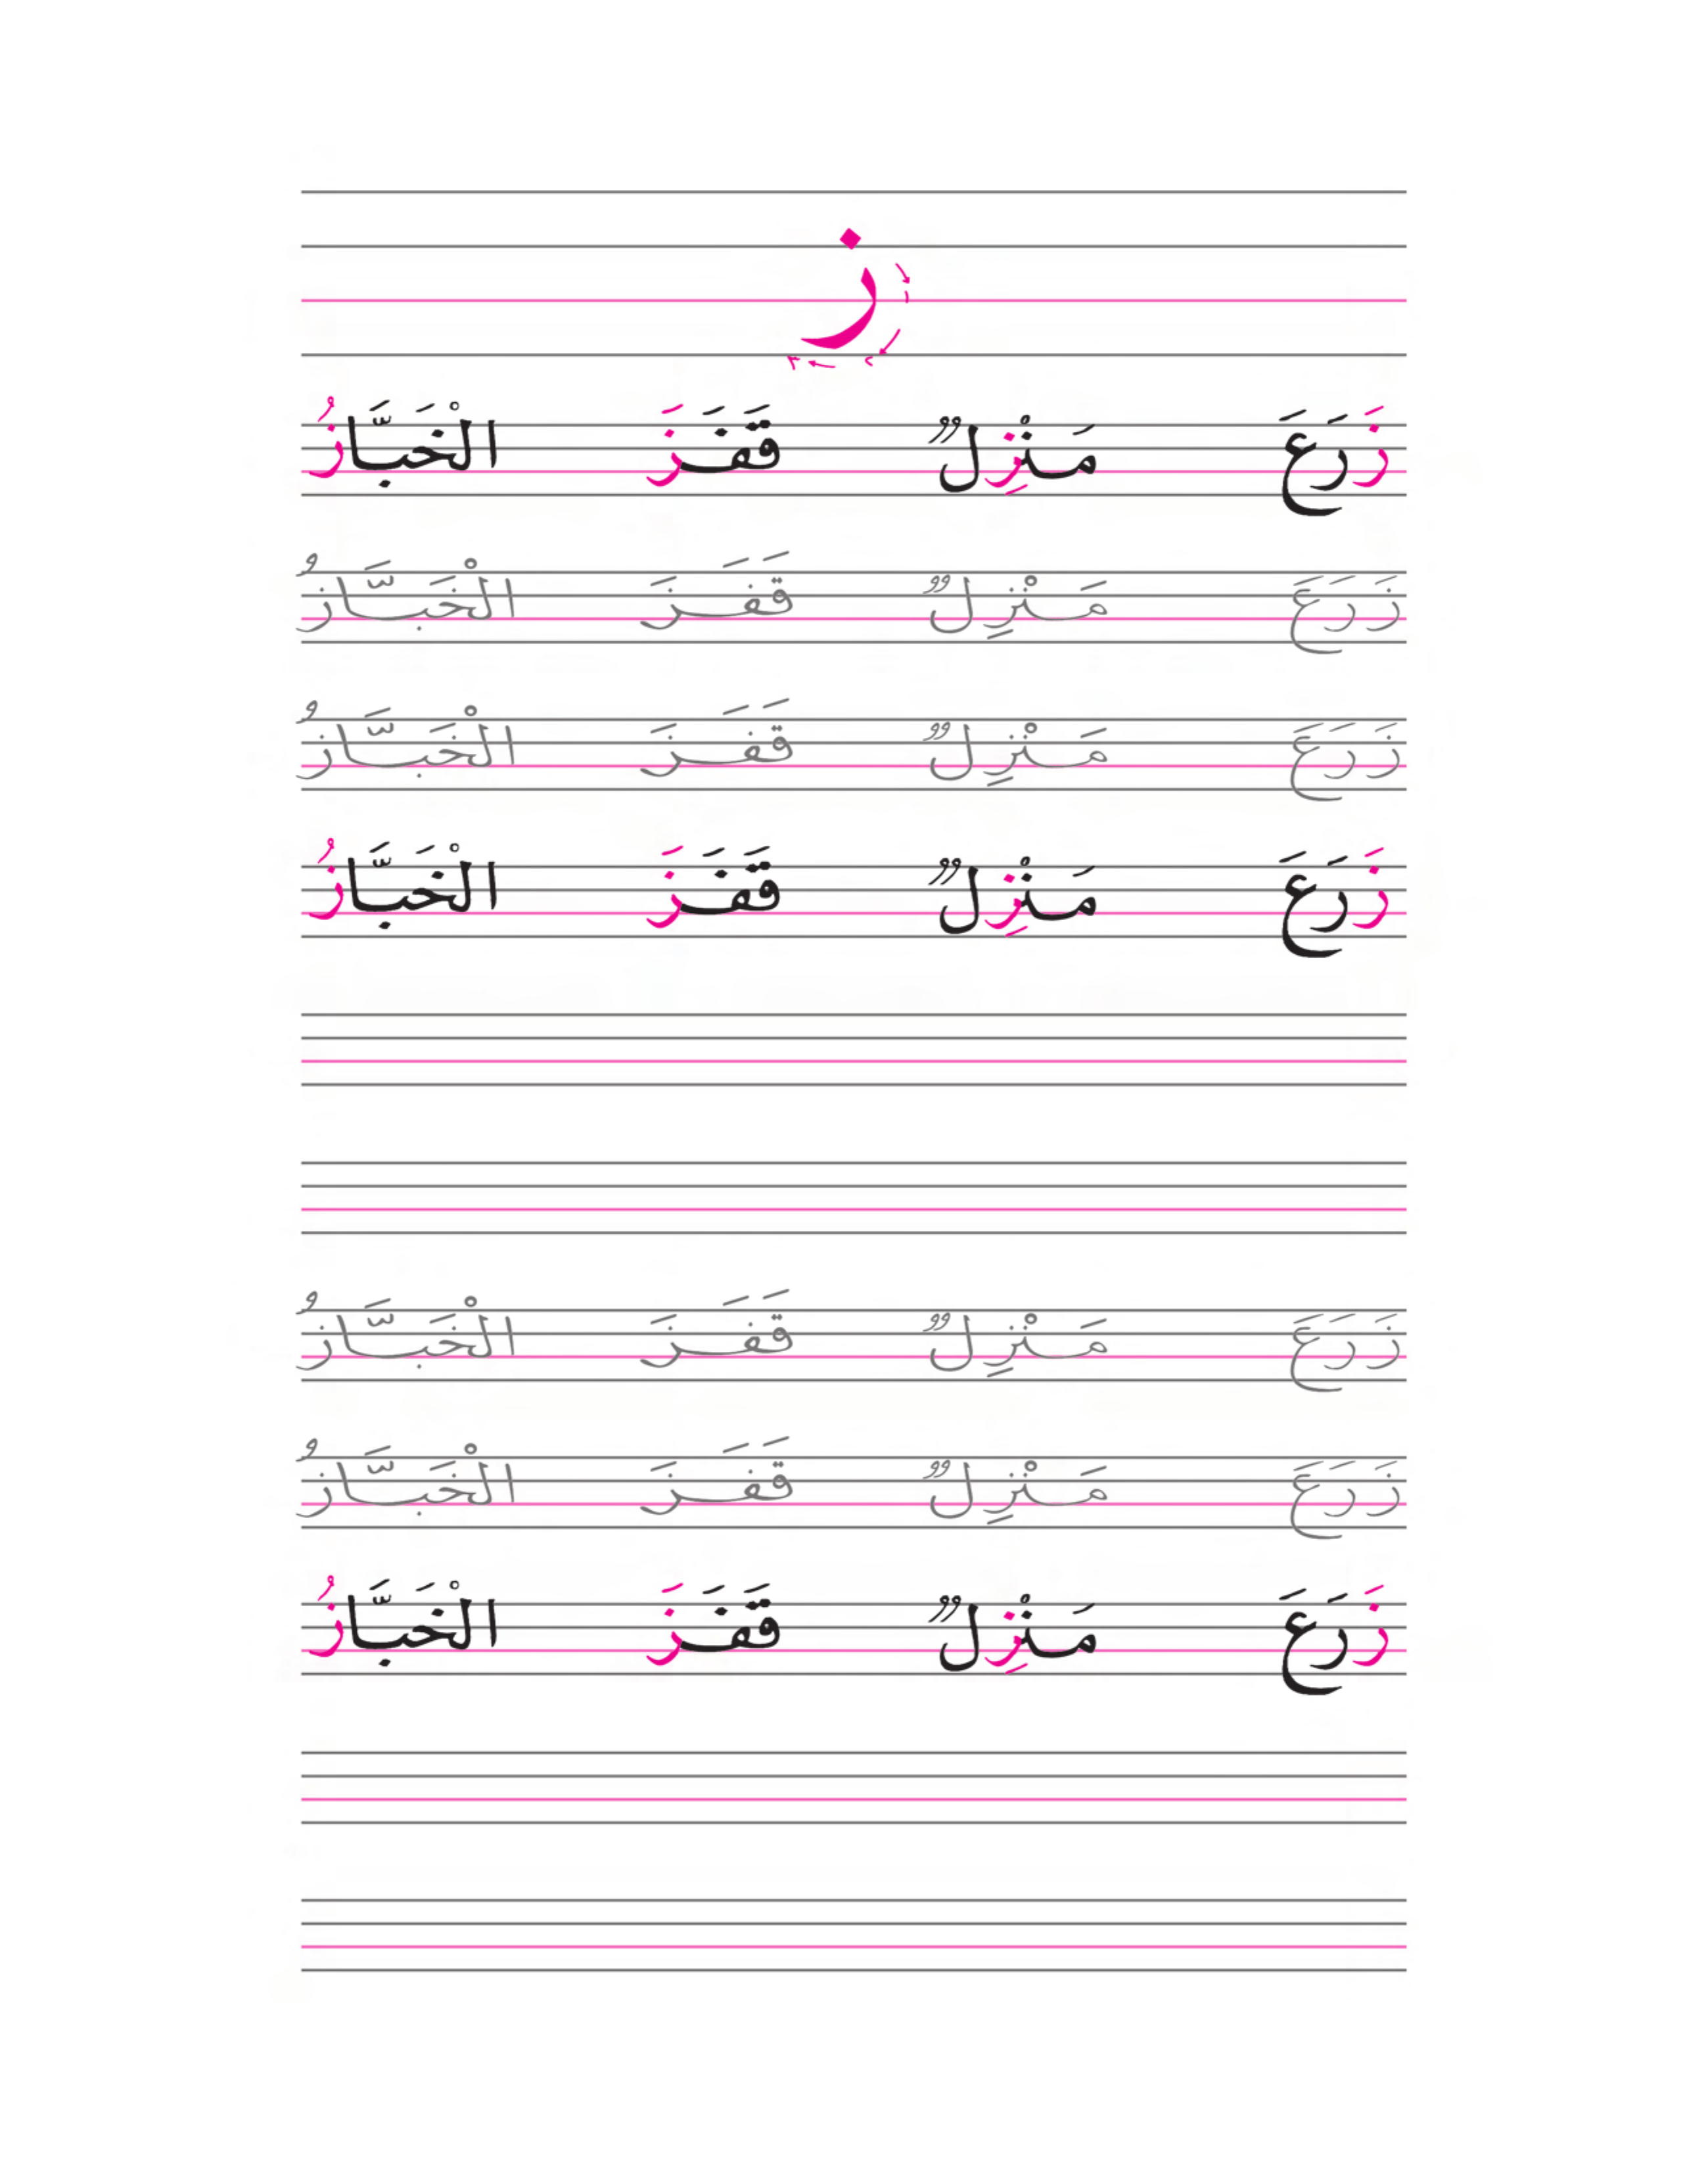 ز
زَرَعَ مَنْزِلٌ قَفَزَ الْخَبَّازُ
زَرَعَ مَنْزِلٌ قَفَزَ الْخَبَّازُ
زَرَعَ مَنْزِلٌ قَفَزَ الْخَبَّازُ
زَرَعَ مَنْزِلٌ قَفَزَ الْخَبَّازُ
زَرَعَ مَنْزِلٌ قَفَزَ الْخَبَّازُ
زَرَعَ مَنْزِلٌ قَفَزَ الْخَبَّازُ
زَرَعَ مَنْزِلٌ قَفَزَ الْخَبَّازُ